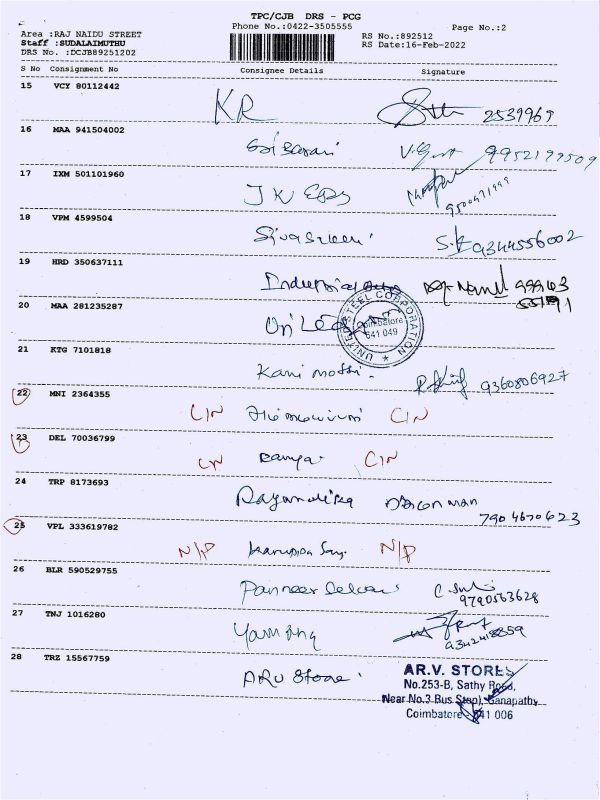 TPC/CJB DRS - PCG
Phone No.:0422-3505555
Page No.:2
Area :RAJ NAIDU STREET
Staff :SUDALAIMUTHU
DRS No. :DCJB89251202
RS No.:892512
RS Date:16-Feb-2022
S No Consignment No Consignee Details Signature
15 VCY 80112442 KR 2539969
16 MAA 941504002 9952199509
17 IXM 501101960 JK
18 VPM 4599504 9344556002
19 HRD 350637111
20 MAA 281235287
UNITED STEEL CORPORATION
Coimbatore
641 049
21 KTG 7101818 Kani mozhi 9360806927
22 MNI 2364355 C/N C/N
23 DEL 70036799 C/N Ramya C/N
24 TRP 8173693
7904670623
25 VPL 333619782 N/P N/P
26 BLR 590529755 Panneer Selvam
9790563628
27 TNJ 1016280
9342418859
28 TRZ 15567759 ARV Store
AR.V. STORES
No.253-B, Sathy Road,
Near No.3 Bus Stop), Ganapathy
Coimbatore - 641 006